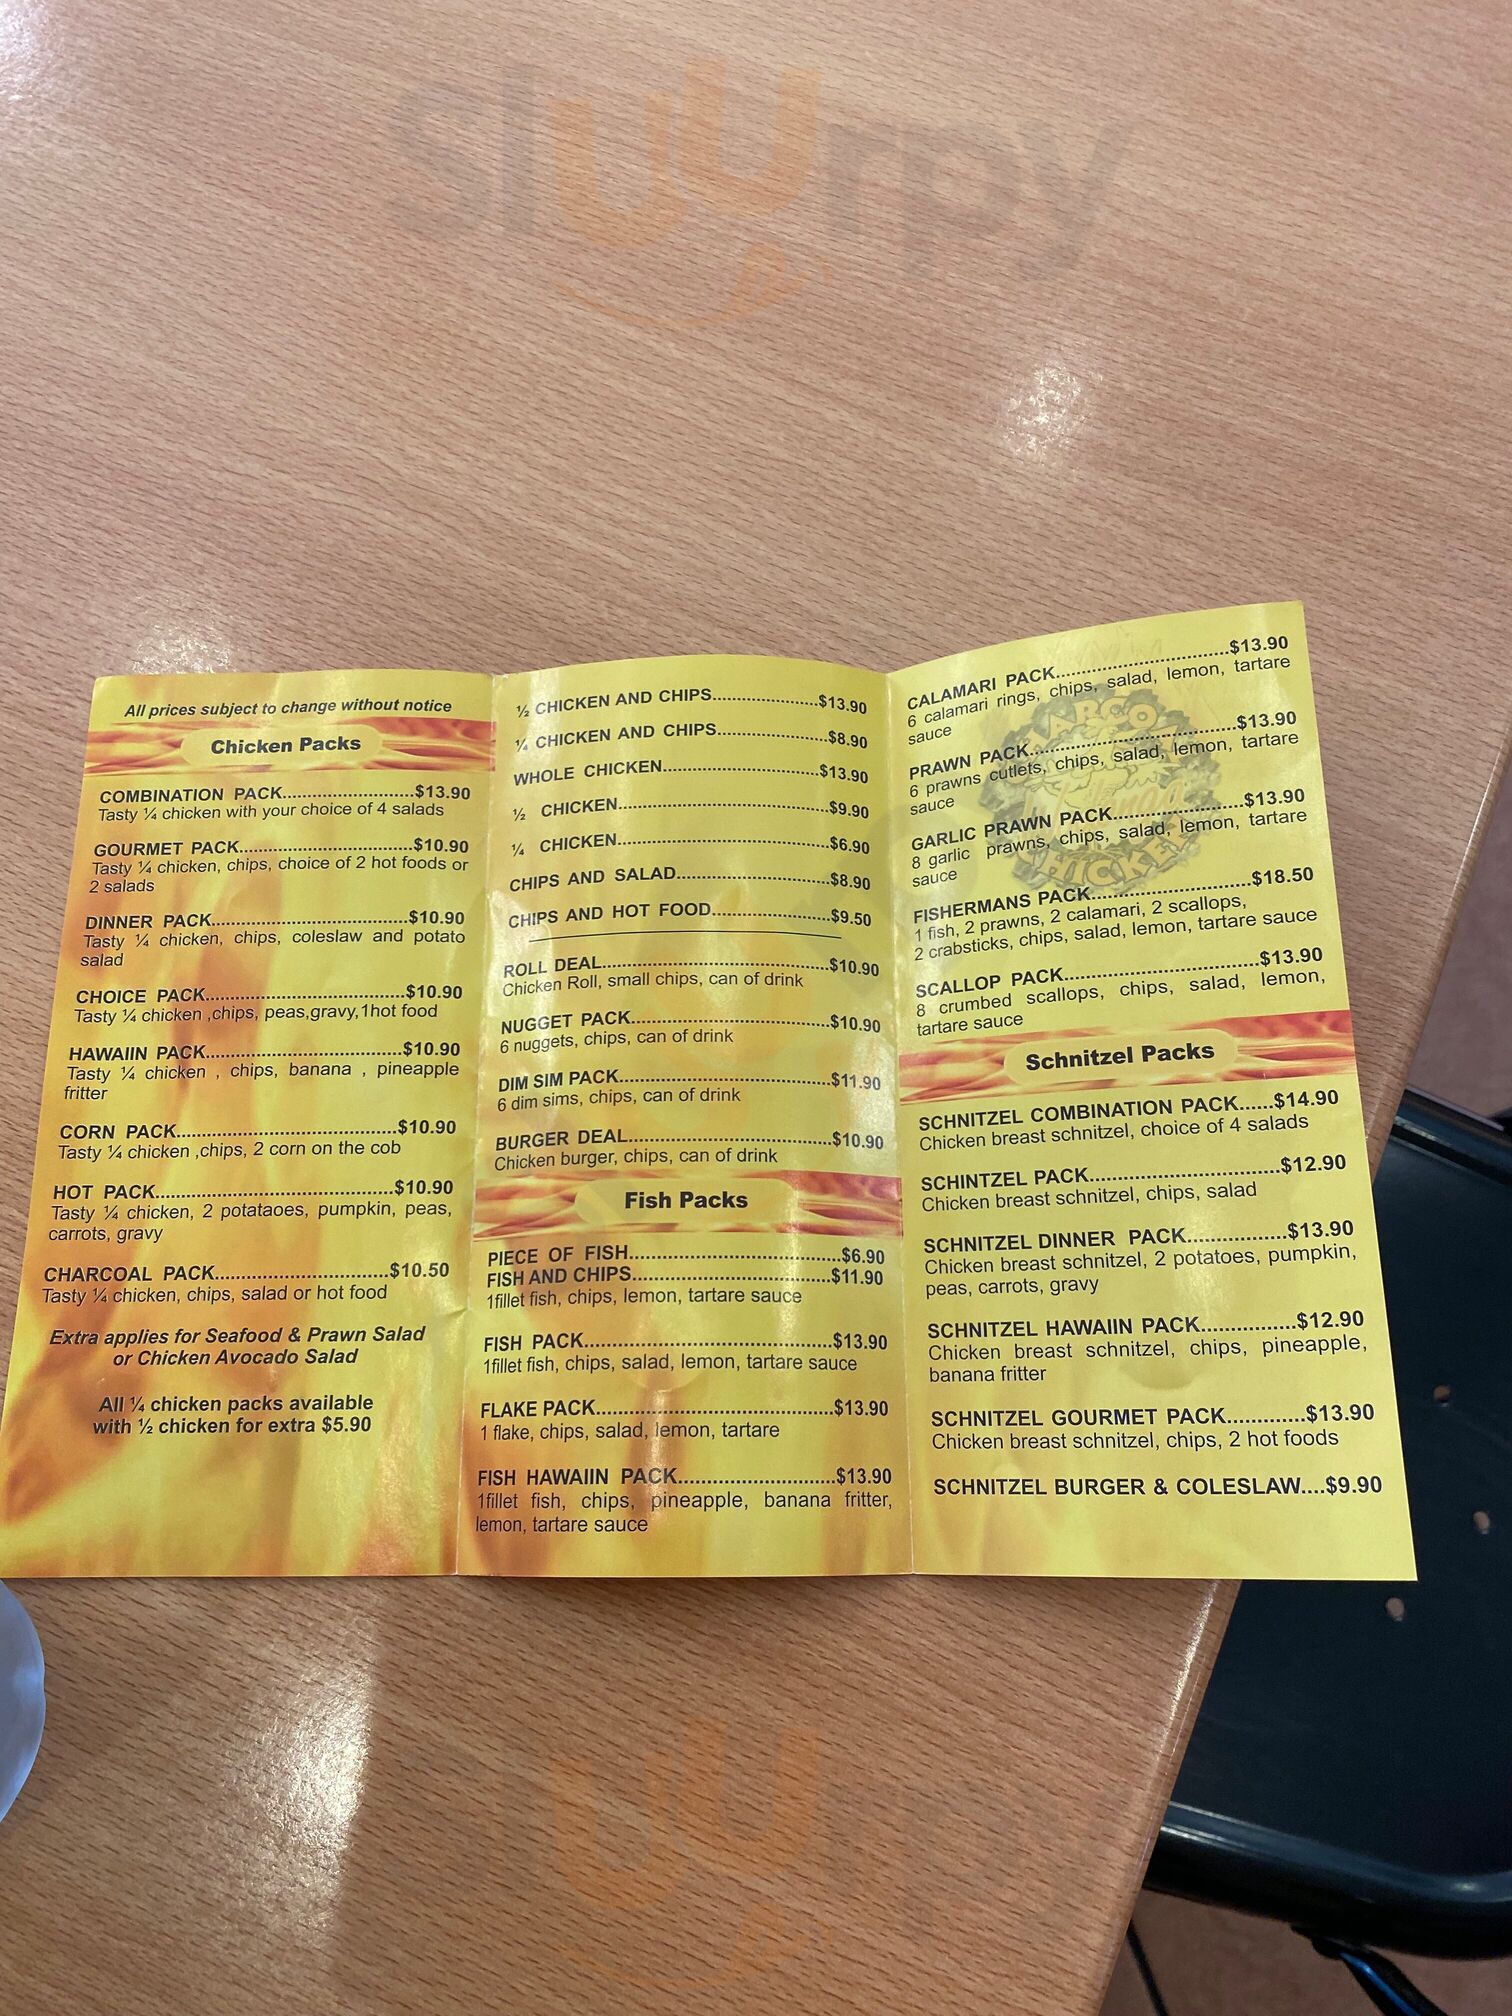 sluurpy
All prices subject to change without notice
Chicken Packs
COMBINATION PACK..............................$13.90
Tasty ¼ chicken with your choice of 4 salads
GOURMET PACK........................................$10.90
Tasty ¼ chicken, chips, choice of 2 hot foods or
2 salads
DINNER PACK.............................................$10.90
Tasty ¼ chicken, chips, coleslaw and potato
salad
CHOICE PACK..............................................$10.90
Tasty ¼ chicken ,chips, peas,gravy,1hot food
HAWAIIN PACK.............................................$10.90
Tasty ¼ chicken , chips, banana , pineapple
fritter
CORN PACK.................................................$10.90
Tasty ¼ chicken ,chips, 2 corn on the cob
HOT PACK....................................................$10.90
Tasty ¼ chicken, 2 potataoes, pumpkin, peas,
carrots, gravy
CHARCOAL PACK......................................$10.50
Tasty ¼ chicken, chips, salad or hot food
Extra applies for Seafood & Prawn Salad
or Chicken Avocado Salad
All ¼ chicken packs available
with ½ chicken for extra $5.90
½ CHICKEN AND CHIPS.......................$13.90
¼ CHICKEN AND CHIPS........................$8.90
WHOLE CHICKEN..................................$13.90
½ CHICKEN.............................................$9.90
¼ CHICKEN.............................................$6.90
CHIPS AND SALAD.................................$8.90
CHIPS AND HOT FOOD..........................$9.50
ROLL DEAL.................................................$10.90
Chicken Roll, small chips, can of drink
NUGGET PACK...........................................$10.90
6 nuggets, chips, can of drink
DIM SIM PACK.............................................$11.90
6 dim sims, chips, can of drink
BURGER DEAL...........................................$10.90
Chicken burger, chips, can of drink
Fish Packs
PIECE OF FISH.............................................$6.90
FISH AND CHIPS..........................................$11.90
1fillet fish, chips, lemon, tartare sauce
FISH PACK....................................................$13.90
1fillet fish, chips, salad, lemon, tartare sauce
FLAKE PACK..................................................$13.90
1 flake, chips, salad, lemon, tartare
FISH HAWAIIN PACK..................................$13.90
1fillet fish, chips, pineapple, banana fritter,
lemon, tartare sauce
CALAMARI PACK.....................................$13.90
6 calamari rings, chips, salad, lemon, tartare
sauce
PRAWN PACK............................................$13.90
6 prawns cutlets, chips, salad, lemon, tartare
sauce
GARLIC PRAWN PACK............................$13.90
8 garlic prawns, chips, salad, lemon, tartare
sauce
FISHERMANS PACK..................................$18.50
1 fish, 2 prawns, 2 calamari, 2 scallops,
2 crabsticks, chips, salad, lemon, tartare sauce
SCALLOP PACK.........................................$13.90
8 crumbed scallops, chips, salad, lemon,
tartare sauce
Schnitzel Packs
SCHNITZEL COMBINATION PACK......$14.90
Chicken breast schnitzel, choice of 4 salads
SCHINTZEL PACK........................................$12.90
Chicken breast schnitzel, chips, salad
SCHNITZEL DINNER PACK.....................$13.90
Chicken breast schnitzel, 2 potatoes, pumpkin,
peas, carrots, gravy
SCHNITZEL HAWAIIN PACK....................$12.90
Chicken breast schnitzel, chips, pineapple,
banana fritter
SCHNITZEL GOURMET PACK................$13.90
Chicken breast schnitzel, chips, 2 hot foods
SCHNITZEL BURGER & COLESLAW....$9.90